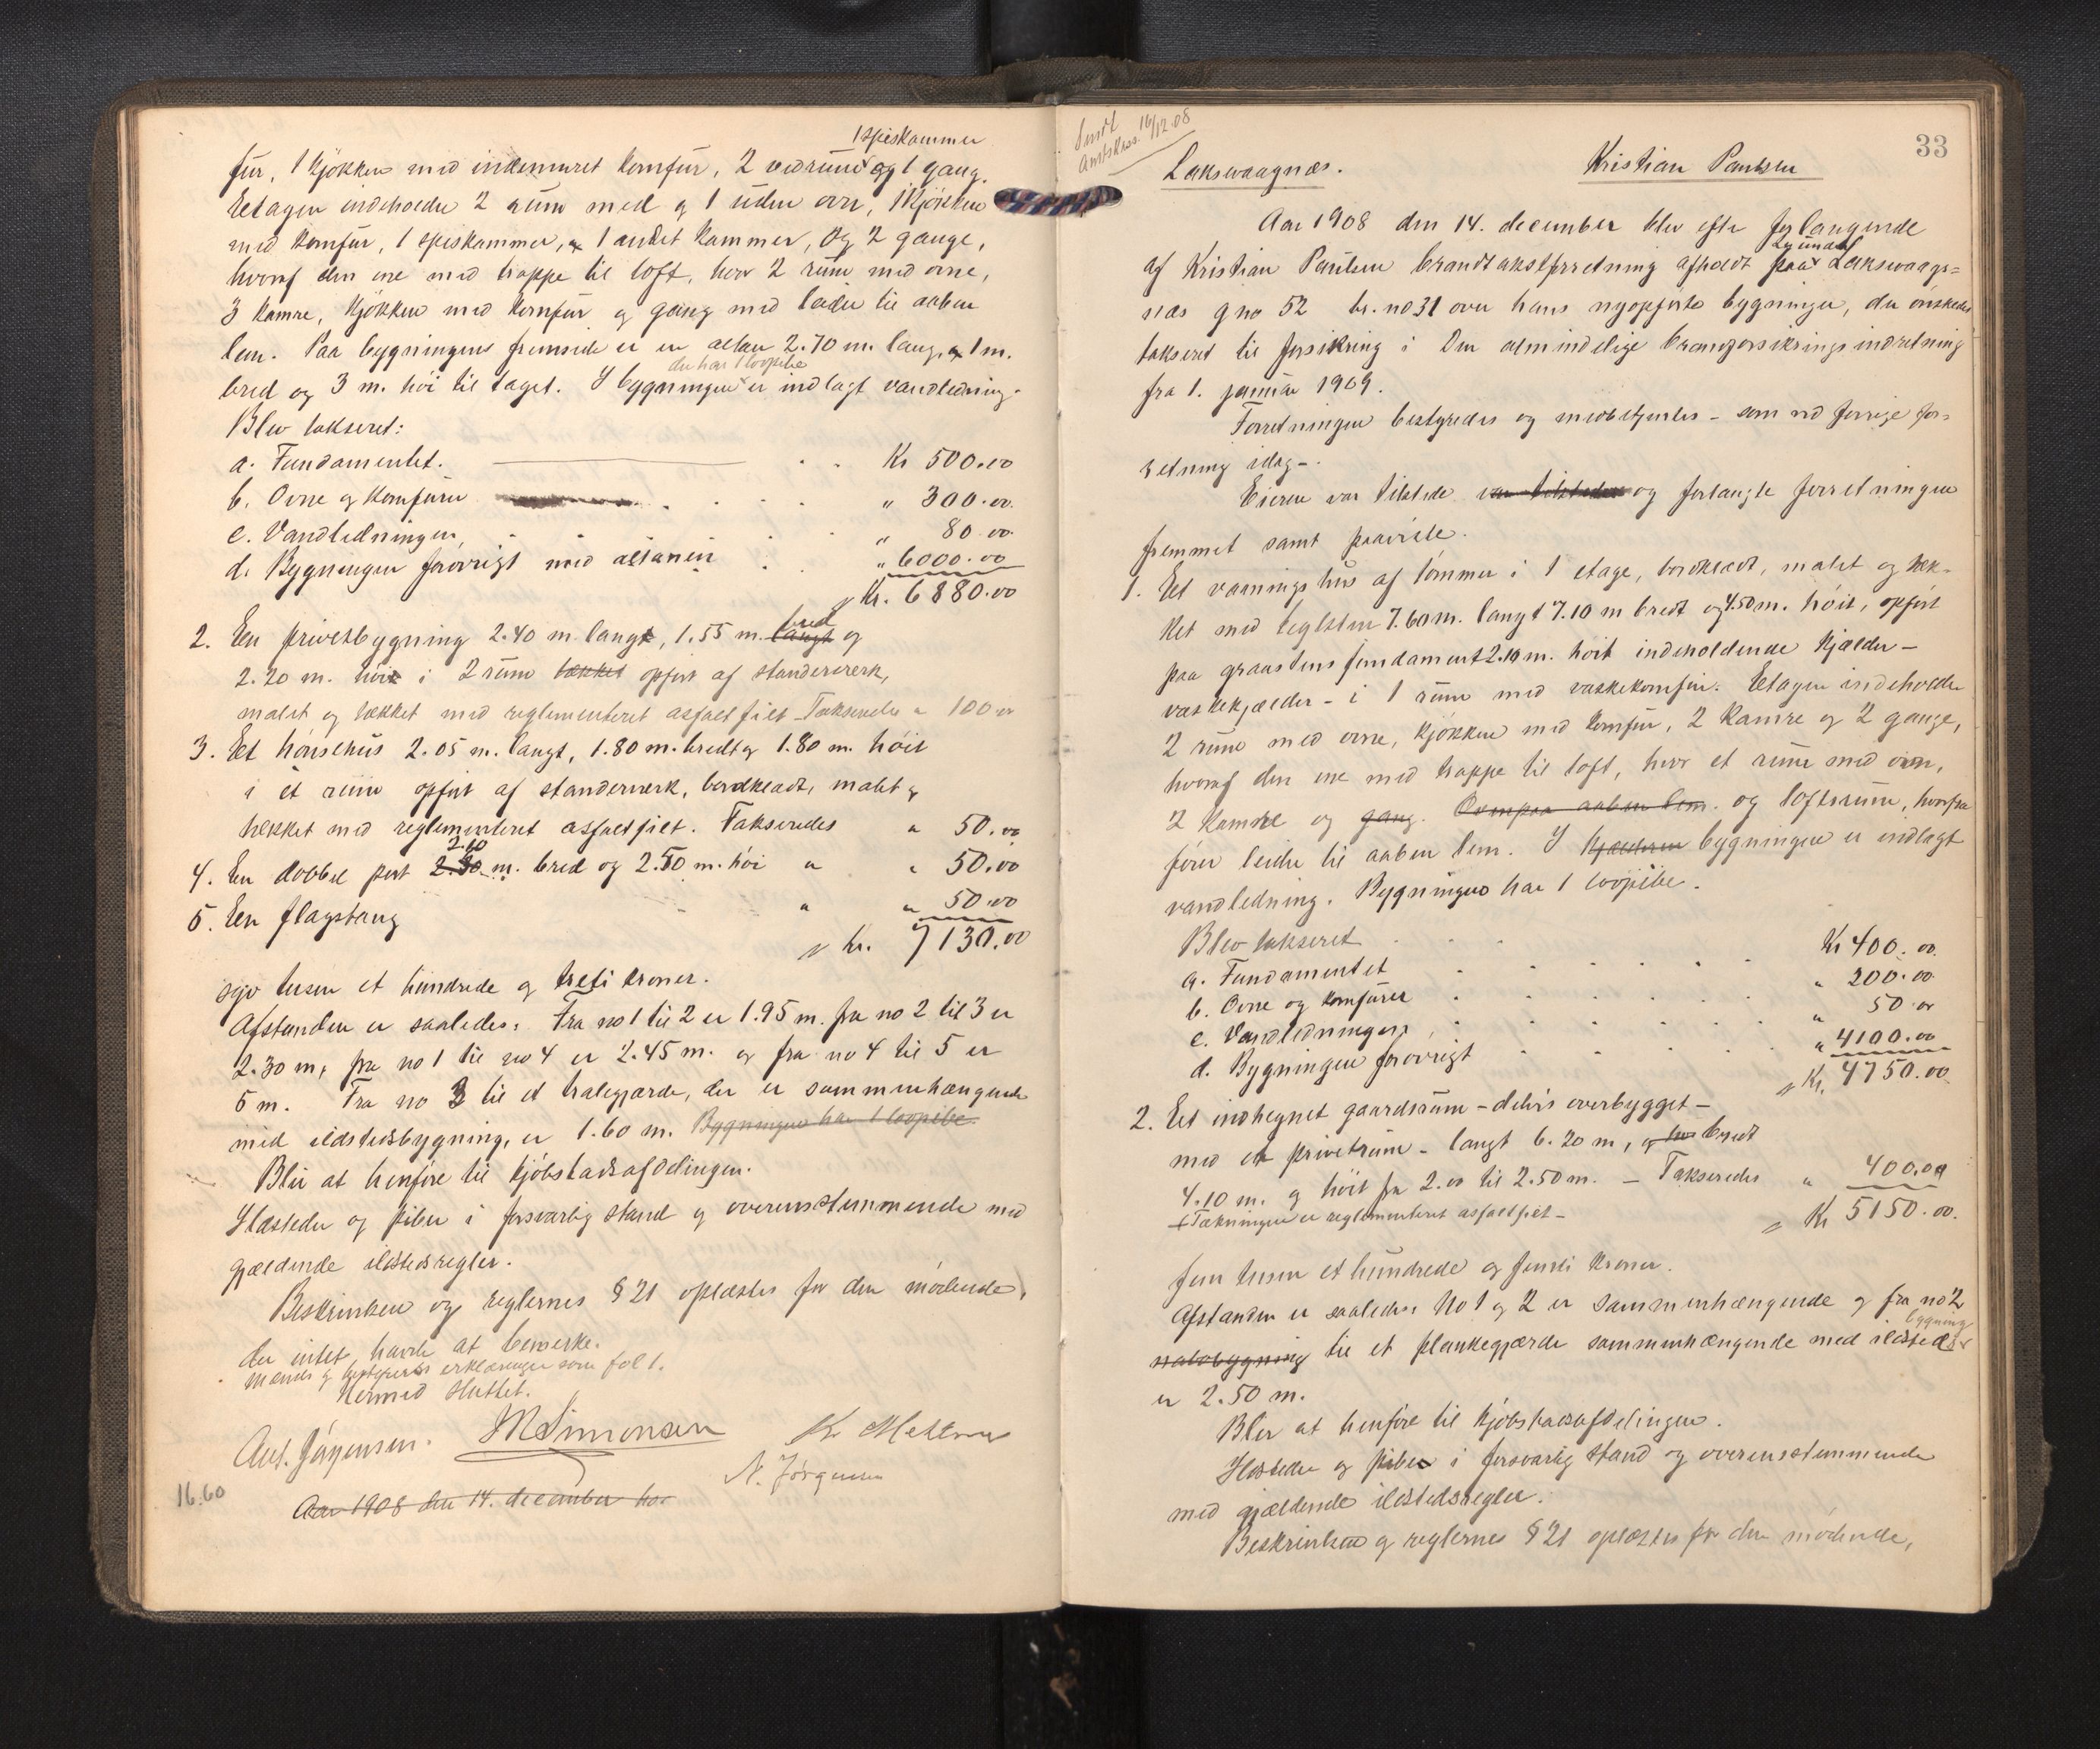 1 spiskammer
fur, 1 kjøkken med indemuret komfur, 2 vedrum og 1 gang.
Eetagen indeholder 2 rum med og 1 uden ovn, 1 kjøkken
med komfur, 1 spiskammer, & 1 andet kammer, og 2 gange,
hvoraf den ene med trappe til loft, hvor 2 rum med ovne,
3 kamre, kjøkken med komfur og gang med leider til aaben
lem. Paa bygningens fremside er en altan 2.70 m. lang, & 1 m.
der har 1 løbpibe
bred og 3 m. høi til taget. I bygningen er indlagt vandledning.
Blev takseret:
a. Fundamentet. Kr 500.00
b. Ovne og Komfurer " 300.00.
c. Vandledningen " 80.00
d. Bygningen forøvrigt med altanen " 6000.00
Kr. 6880.00
2. Een privetbygning 2.40 m. langt, 1.55 m. langt bred og
2.20 m. høit i 2 rum tækket opført af standerverk,
malet og tækket med reglementeret asfaltfilt – Takseredes " 100.00
3. Eet hønsehus 2.05 m. langt, 1.80 m. bredt og 1.80 m. høit
i et rum opført af standerverk, bordklædt, malet &
tækket med reglementeret asfaltfilt. Takseredes " 50.00
2.10
4. En dobbel port m. bred og 2.50 m. høi " " 50.00
5. Een flagstang " " 50.00
Kr. 7130.00
syv tusen et hundrede og treti kroner.
Afstanden er saaledes: Fra no 1 til 2 er 1.95 m. fra no 2 til 3 er
2.30 m, fra no 1 til no 4 er 2.45 m. og fra no 4 til 5 er
5 m. Fra no 3 til et gjærde, der er sammenhængende
med ildstedsbygning, er 1.60 m. Bygningen har 1 løbpibe.
Blir at henføre til kjøbstadsafdelingen.
Ildsteder og piber i forsvarlig stand og overensstemmende med
gjældende ildstedsregler.
Beskrivelsen og reglernes § 21 oplæstes for den mødende,
der intet havde at bemerke.
Mænds & bestyrers erklæringer som fol 1.
Hermed sluttet.
Ant. Jørgensen. M Simonsen
N. Jørgensen
16.60
Aar 1908 den 14. december hos
Sendt
Amtskas. 16/12.08
33
Lakswaagnæs. Kristian Paulsen
Aar 1908 den 14. december blev efter forlangende
af Kristian Paulsen brandtakstforretning afholdt paa Lakswaags=
næs gno 52 br. no 31 over hans nyopførte bygninger, der ønskedes
takseret til forsikring i Den almindelige brandforsikringsindretning
fra 1. januar 1909.
Forretningen bestyredes og medbetjentes – som ved forrige for=
retning idag –.
Eieren var tilstede var tilstede og forlangte forretningen
fremmet samt paaviste.
1. Eet vaaningshus af tømmer i 1 etage, bordklædt, malet og tæk-
ket med teglsten 7.60 m. langt 7.10 m bredt og 4.50 m. høit, opført
paa graastens fundament 2.10 m. høit indeholdende kjælder –
vaskekjælder – i 1 rum med vaskekomfur. Etagen indeholder
2 rum med ovne, kjøkken med komfur, 2 kamre og 2 gange,
hvoraf den ene med trappe til loft, hvor et rum med ovn,
2 kamre og gang. Ovenpaa aaben lem. og loftsrum, hvorfra
fører leider til aaben lem. I kjælderen bygningen er indlagt
vandledning. Bygningen har 1 løbpibe.
Blev takseret
a. Fundamentet Kr 400.00.
b. Ovne og komfurer " 200.00.
c. Vandledningen " 50.00
d. Bygningen forøvrigt " 4100.00
Kr. 4750.00
2. Eet indhegnet gaardsrum – delvis overbygget –
med et privetrum – langt 6.20 m, bredt
4.10 m. og høit fra 2.00 til 2.50 m. – Takseredes " 400.00
Tækningen er reglementeret asfaltfilt – Kr 5150.00.
fem tusen et hundrede og femti kroner.
Afstanden er saaledes: No 1 og 2 er sammenhængende og fra no 2
bygning
til et plankegjærde sammenhængende med ildsteds
er 2.50 m.
Bler at henføre til kjøbstadsafdelingen.
Ildsteder og piber i forsvarlig stand og overensstemmende
med gjældende ildstedsregler.
Beskrivelsen og reglernes § 21 oplæstes for den mødende,